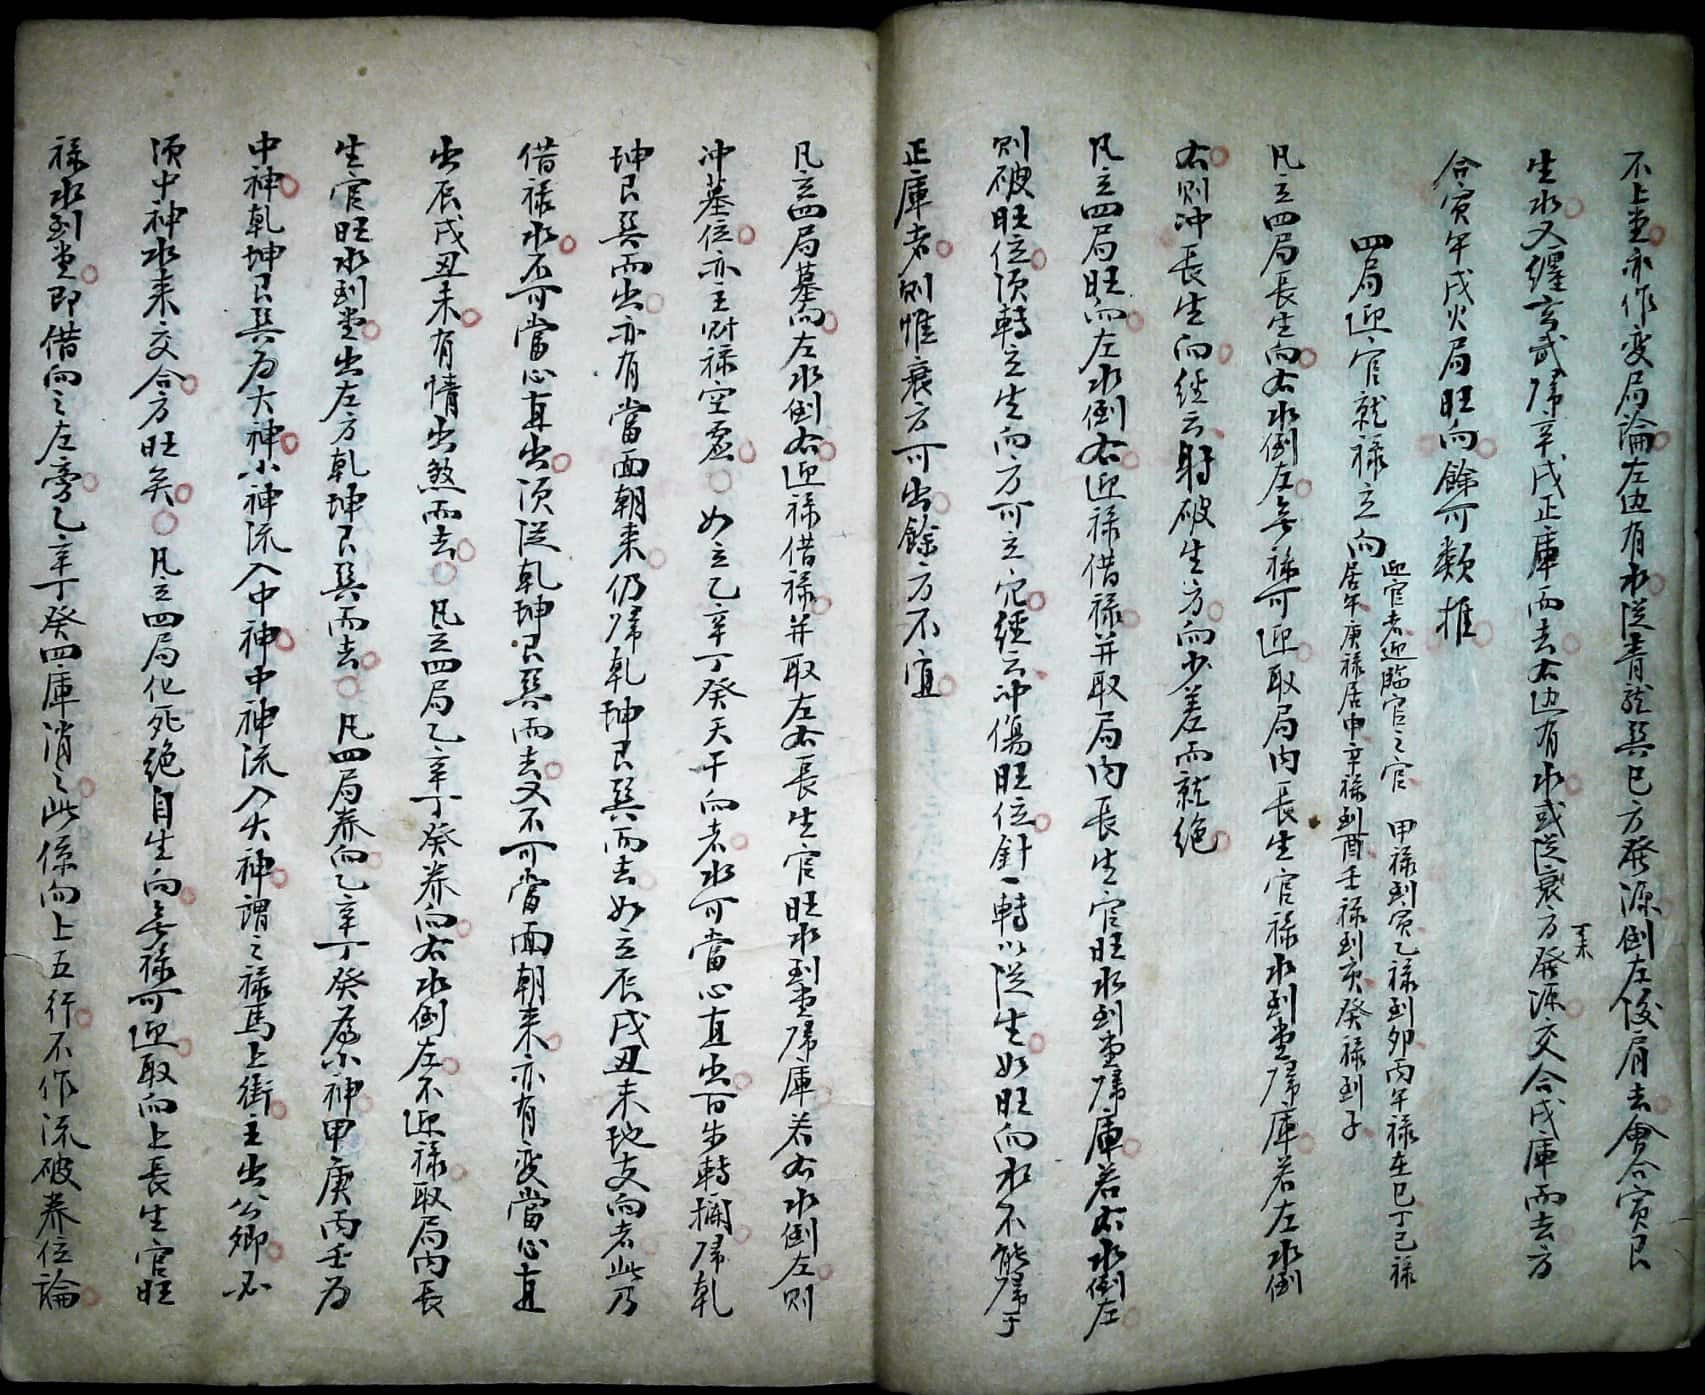 不上堂亦作变局論左边有水従青龍巽巳方發源倒左後肩去會合寅艮
生水又纏玄武帰辛戌正庫而去右边有水或従衰方發源交合戌庫而去方
丁未
合寅午戌火局旺向餘可類推
四局迎官就禄立向
迎官者迎臨官之官 甲禄到寅乙禄到卯丙午禄在巳丁己禄
居午庚禄居申辛禄到酉壬禄到亥癸禄到子
凡立四局長生向右水倒左無禄可迎取局内長生官禄水到堂帰庫若左水倒
右則冲長生向經云射破生方向少差而就绝
凡立四局旺向左水倒右迎禄借禄并取局内長生官旺水到堂帰庫若右水倒左
则破旺位須轉立生向方可立穴經云冲傷旺位針一轉以従生如旺向水不能帰于
正庫者则惟衰方可出餘方不宜
凡立四局墓向左水倒右迎禄借禄并取左右長生官旺水到堂帰庫若右水倒左则
冲墓位亦主财禄空虚 如立乙辛丁癸天干向者水可當心直出百步轉擱帰乾
坤艮巽而出亦有當面朝来仍帰乾坤艮巽而去如立辰戌丑未地支向者此乃
借禄水不可當心直出須従乾坤艮巽而去又不可當面朝来亦有变當心直
出辰戌丑未有情出煞而去 凡立四局乙辛丁癸养向右水倒左不迎禄取局内長
生官旺水到堂出左方乾坤艮巽而去 凡四局养向乙辛丁癸為小神甲庚丙壬为
中神乾坤艮巽为大神小神流入中神中神流入大神謂之禄馬上街主出公卿必
須中神水来交合方旺矣 凡立四局化死绝自生向無禄可迎取向上長生官旺
禄水到堂即借向之左旁乙辛丁癸四庫消之此係向上五行不作流破养位論